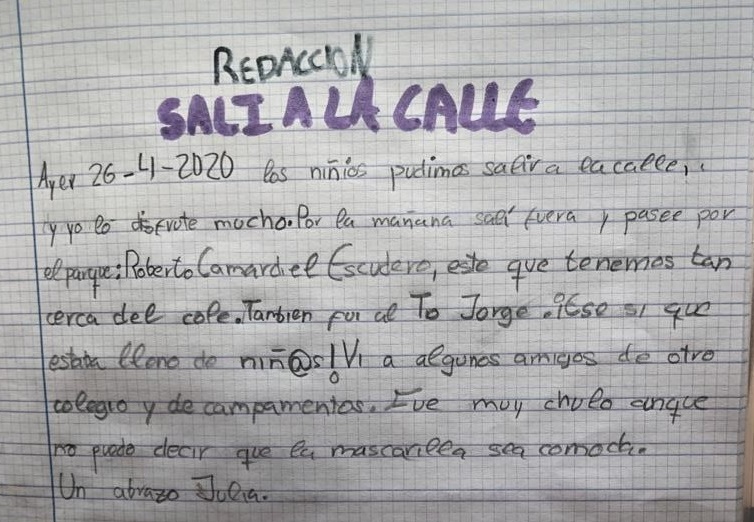 REDACCION
SALI A LA CALLE
Ayer 26-4-2020 los niños pudimos salir a la calle,
y yo lo disfrute mucho. Por la mañana salí fuera y pasee por
el parque: Roberto Camardiel Escudero, este que tenemos tan
cerca del cole. Tanbien fui al To Jorge. ¡Ese si que
estaba lleno de niñ@s! Vi a algunos amigos de otro
colegio y de campamentos. Fue muy chulo aunque
no puedo decir que la mascarilla sea comoda.
Un abrazo Julia.